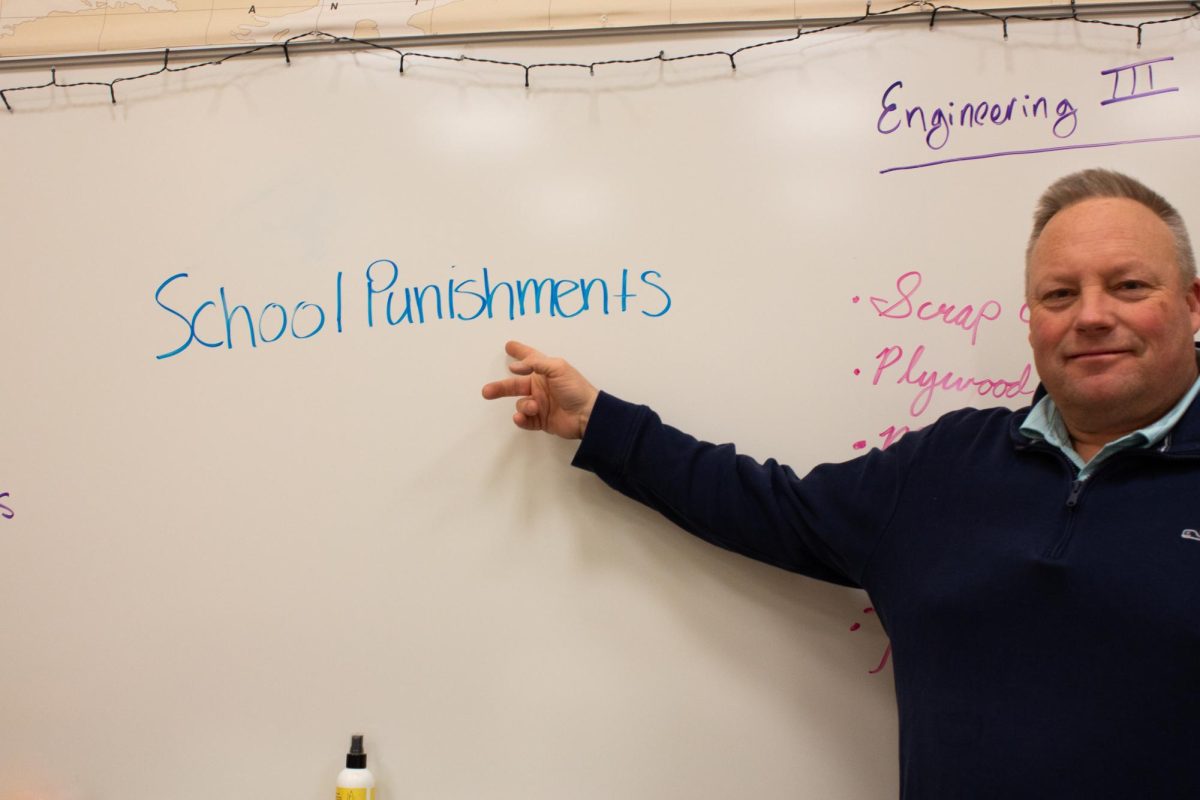 A N T
Engineering III
School Punishments
• Scrap
• Plywood
s